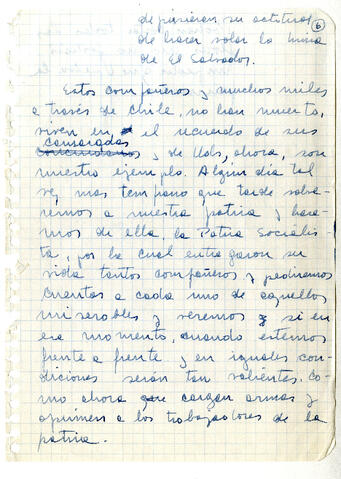 depusieran su actitud 6
de hacer volar la mina
de El Salvador.
Estos compañeros y muchos miles
a través de Chile, no han muerto,
viven en el recuerdo de sus
camaradas
y de Uds, ahora, son
nuestro ejemplo. Algún día tal
vez mas temprano que tarde volve-
remos a nuestra patria y hare-
mos de ella, la Patria Socialis-
ta, por la cual entregaron su
vida tantos compañeros y pediremos
cuentas a cada uno de aquellos
miserables y veremos si en
ese momento, cuando estemos
frente a frente y en iguales con-
diciones serán tan valientes co-
mo ahora que cargan armas y
oprimen a los trabajadores de la
patria.